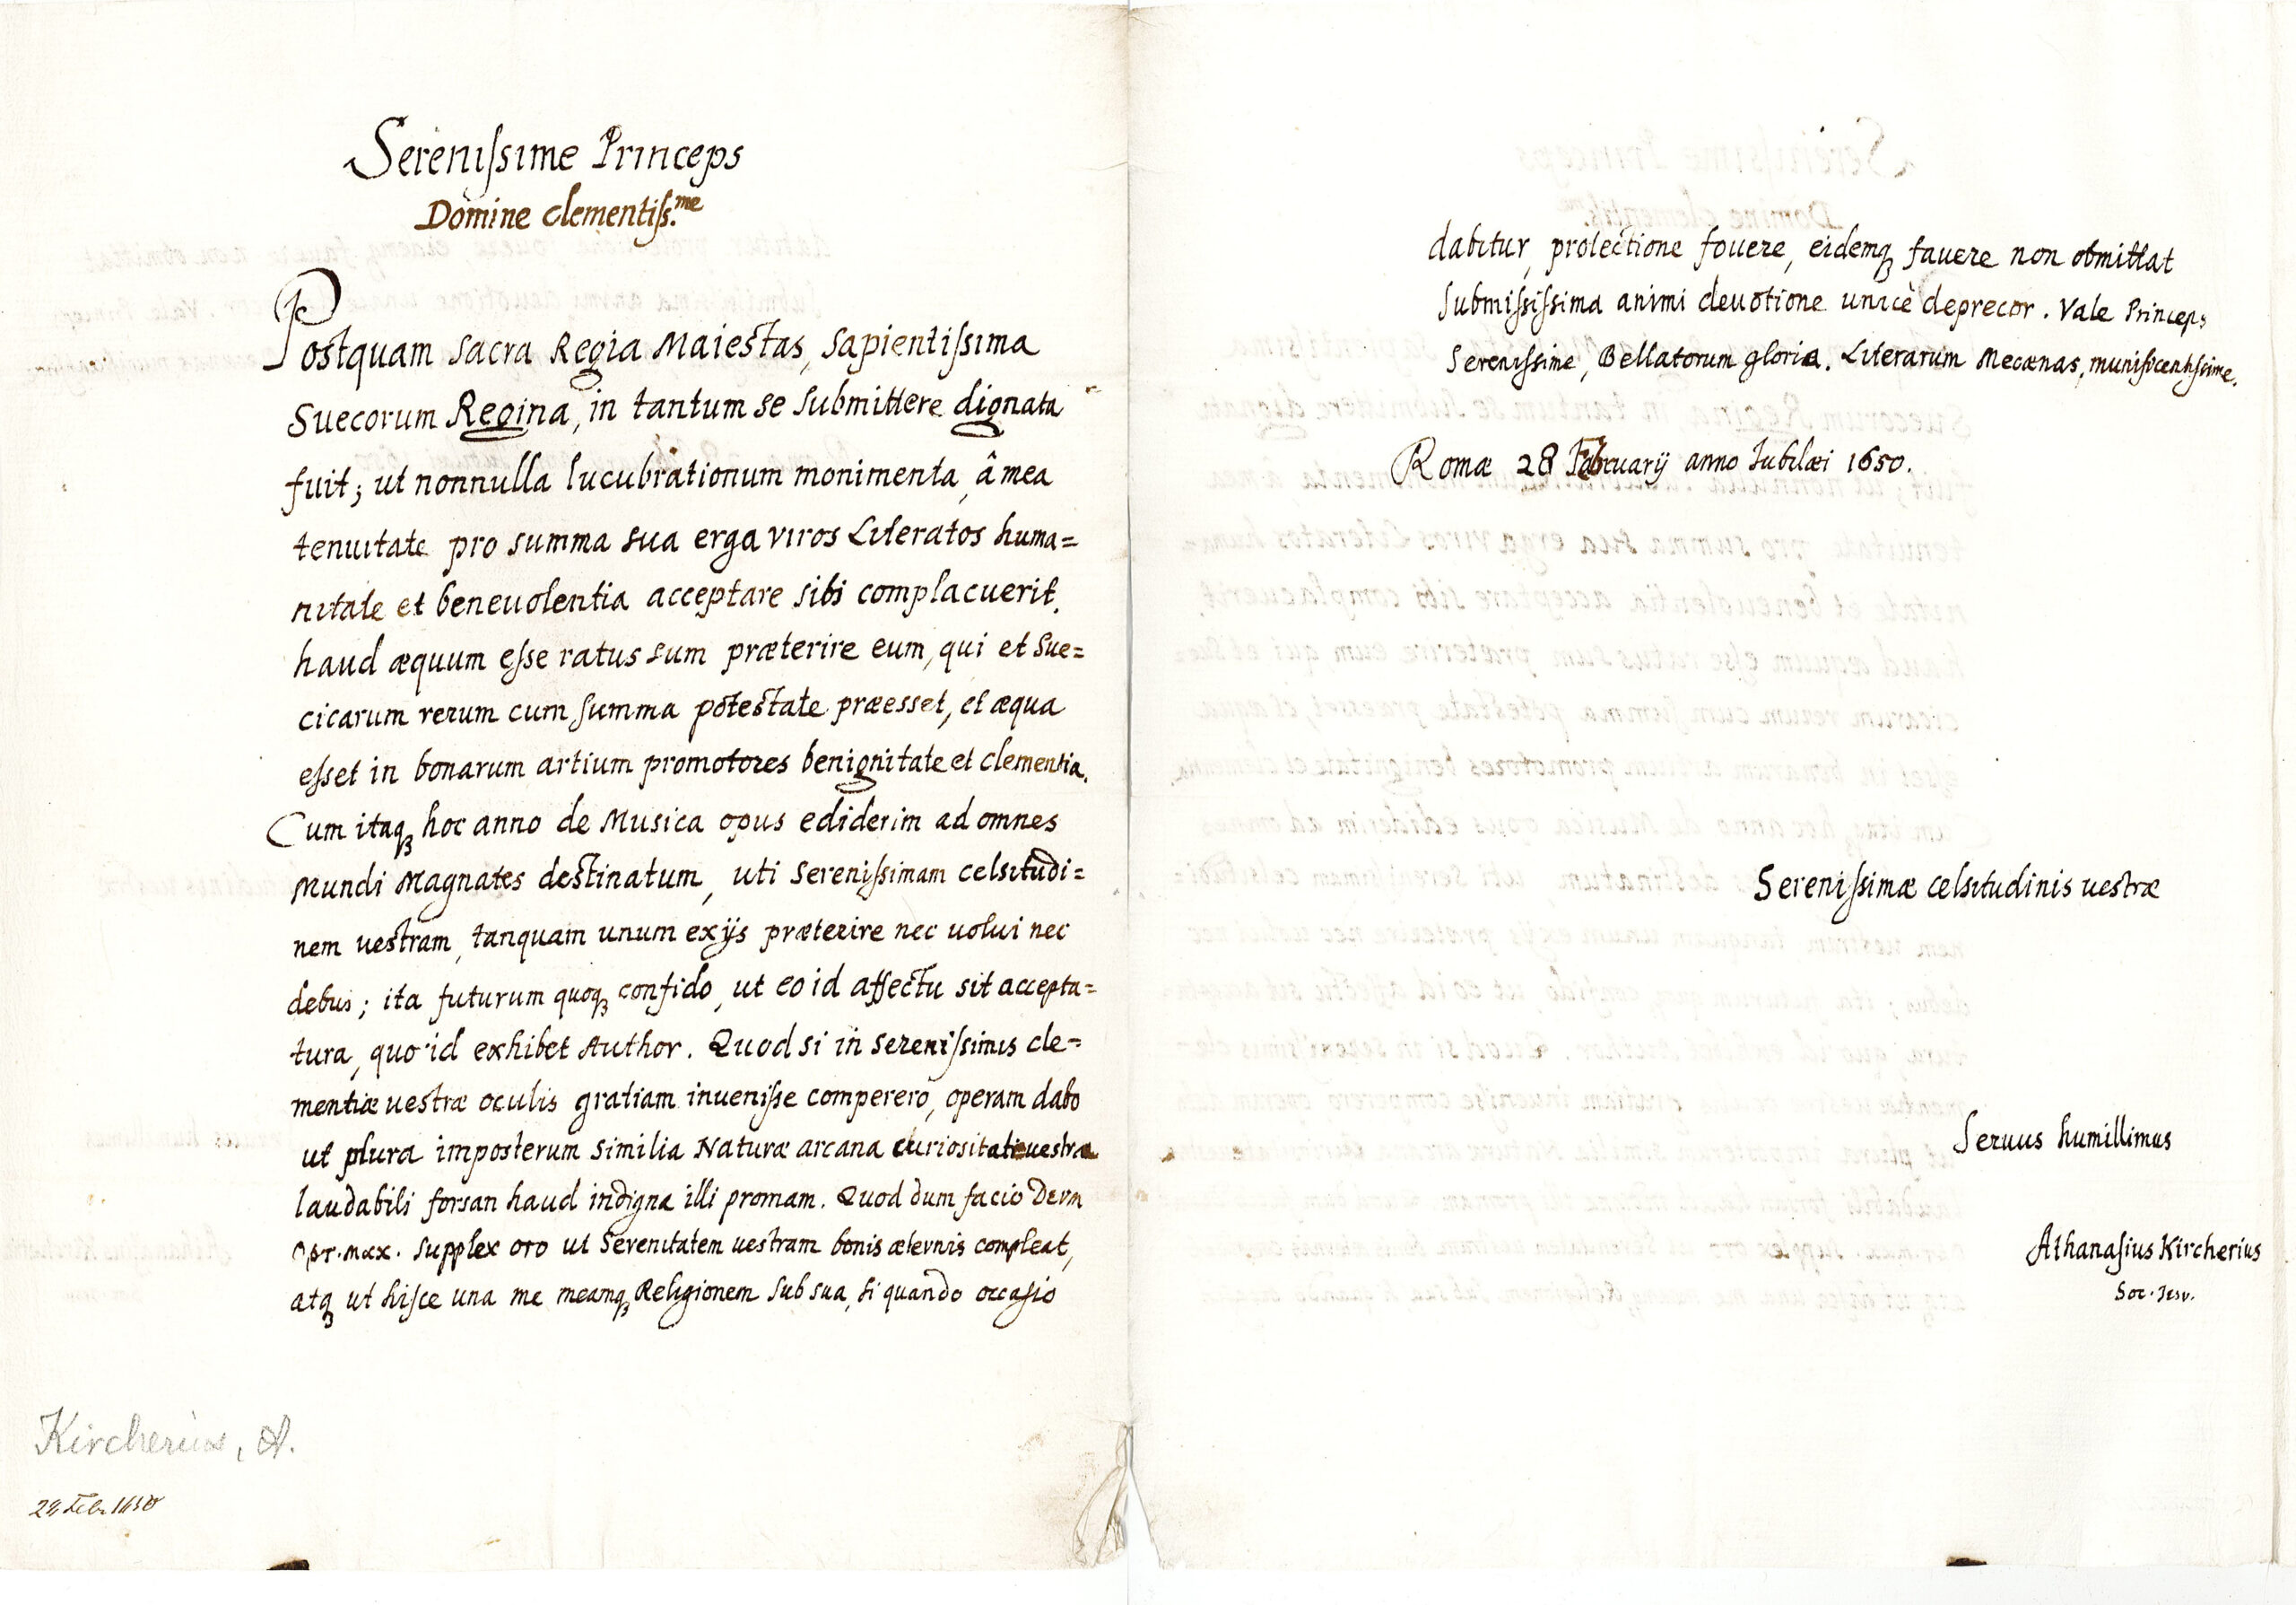 Sereniſsime Princeps
Domine clementiſs.me
Postquam Sacra Regia Maiestas, Sapientiſsima
Suecorum Regina, in tantum se Submittere dignata
fuit; ut nonnulla lucubrationum monimenta, â mea
tenuitate pro summa sua erga viros Literatos huma=
nitate et beneuolentia acceptare sibi complacuerit,
haud æquum eſse ratus sum præterire eum, qui et Sue=
cicarum rerum cum ſumma potestate praeesset, et æqua
eſset in bonarum artium promotores benignitate et clementia.
Cum itaqꝫ hoc anno de Musica opus ediderim ad omnes
Mundi Magnates destinatum, uti Sereniſsimam celsitudi=
nem uestram, tanquam unum ex ijs præterire nec uolui nec
debui; ita futurum quoqꝫ confido, ut eo id affectu sit accepta=
tura, quo id exhibet Author. Quod si in sereniſsimis cle=
mentiæ uestræ oculis gratiam inueniſse comperero, operam dabo
ut plura imposterum similia Naturæ arcana curiositati uestræ
laudabili forsan haud indigna illi promam. Quod dum facio Deum
Opt. Max. Supplex oro ut Serenitatem uestram bonis æternis compleat,
atqꝫ ut hiſce una me meamqꝫ Religionem Sub sua, ſi quando occaſio
dabitur, protectione fouere, eidemqꝫ fauere non obmittat
Submiſsiſsima animi deuotione unicè deprecor. Vale Princeps
Sereniſsime, Bellatorum gloria. Literarum Mecænas, munificentiſsime.
Romæ 28 Februarij anno Iubilæi 1650.
Sereniſsimæ celsitudinis uestræ
Seruus humillimus
Athanaſius Kircherius
Soc. Iesu.
Kircherius, A.
28 Febr 1650